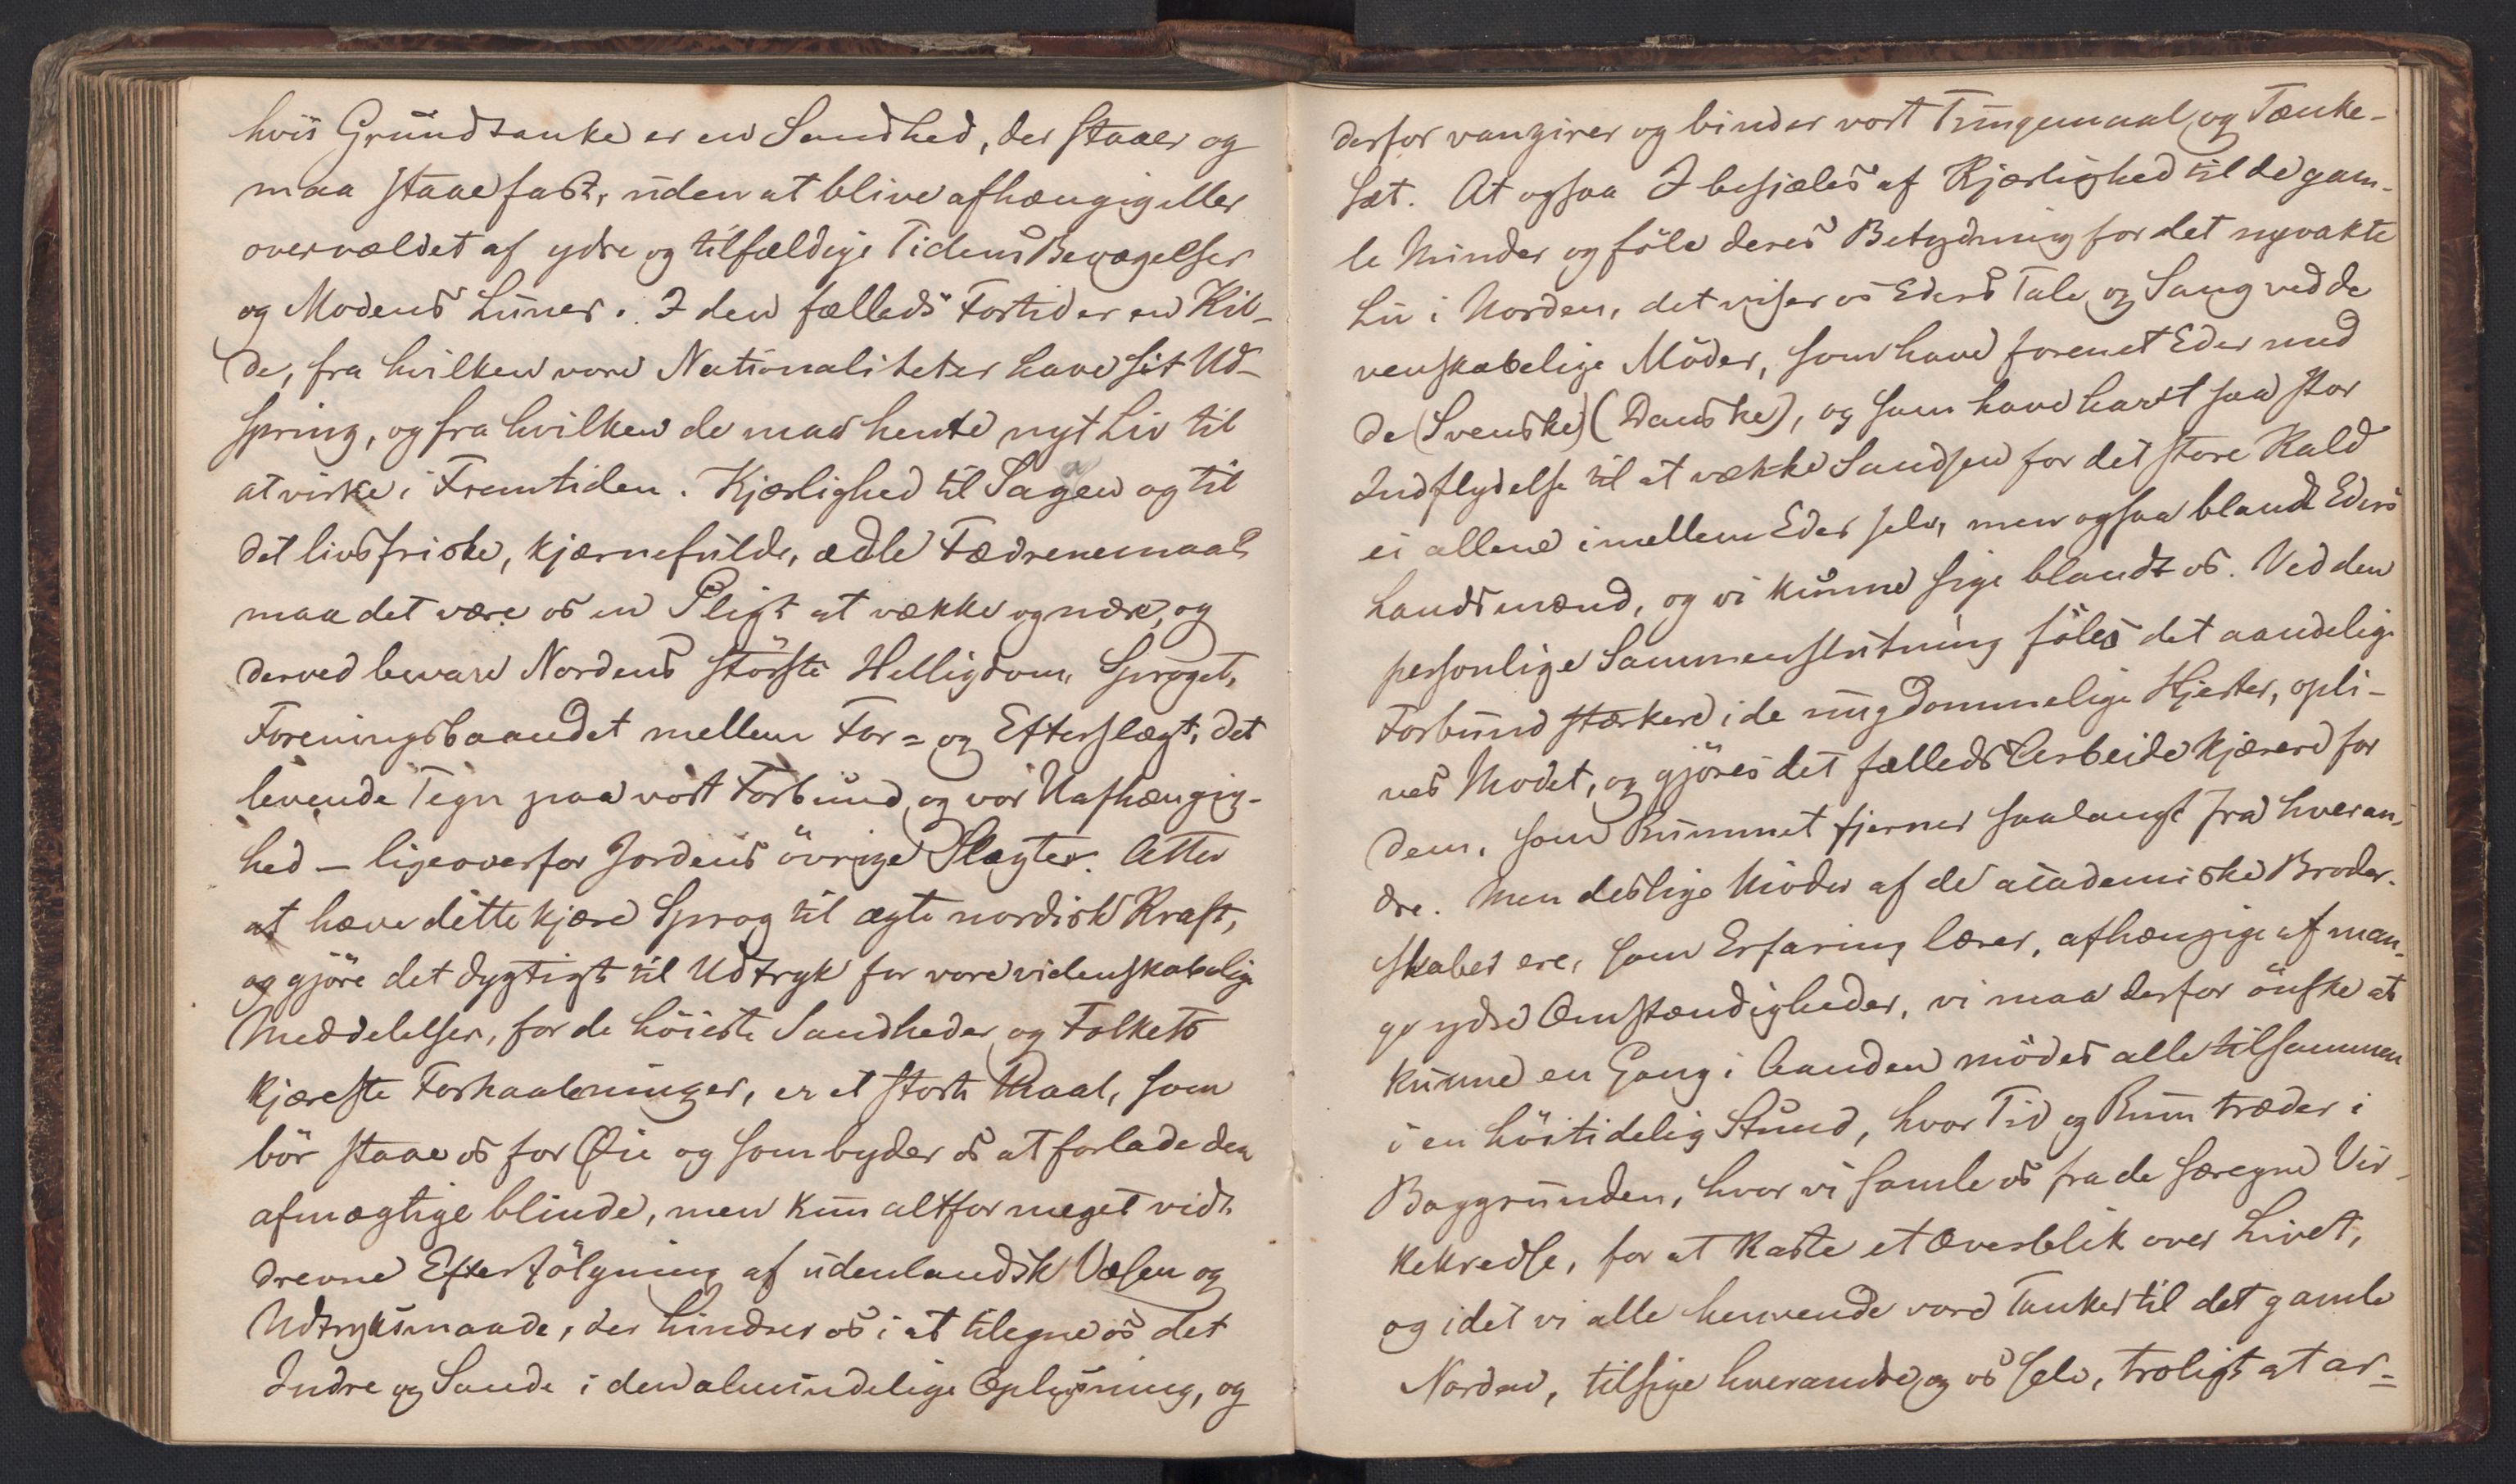 hvis Grundtanke er en Sandhed, der staaer og
maa staae fast, uden at blive afhængig eller
overvældet af ydre og tilfældige Tidens Bevægelser
og Modens Luner. I den fælleds Fortid er en Kil-
de, fra hvilken vore Nationaliteter have sit Ud-
spring, og fra hvilken de maa hente nyt Liv til
at virke i Fremtiden. Kjærlighed til Sagen og til
det livsfriske, kjærnefulde, ædle Fædrenemaal
maa det være os en Pligt at vække og nære, og
derved bevare Nordens störste Helligdom, Sproget,
Foreningsbaandet mellem For= og Efterslægt, det
levende Tegn paa vort Forbund og vor Uafhængig-
hed – ligeoverfor Jordens övrige Slægter. Atter
at hæve dette kjære Sprog til ægte nordisk Kraft,
og gjöre det dygtigt til Udtryk for vore videnskabelige
Meddelelser, for de höieste Sandheder og Folkets
kjæreste Forhaabninger, er et stort Maal, som
bör staae os for Öie og som byder os at forlade den
afmægtige blinde, men kun altfor meget vidt
drevne Efterfölgning af udenlandsk Væsen og
Udtryksmaade, der hindrer os i at tilegne os det
Indre og Sande i den almindelige Oplysning, og
derfor vanzirer og binder vort Tungemaal og Tænke-
sæt. At ogsaa I besjæles af Kjærlighed til de gam-
le Minder og föle deres Betydning for det nyvakte
Liv i Norden, det viser os Eders Tale og Sang ved de
venskabelige Möder, som have forenet Eder med
de (Svenske) (Danske), og som have havt saa stor
Indflydelse til at vække Sandsen for det store Kald
ei allene imellem Eder selv, men ogsaa blandt Eders
Landsmænd, og vi kunne sige blandt os. Ved den
personlige Sammenslutning föles det aandelige
Forbund stærkere i de ungdommelige Hjerter, opli-
ves Modet, og gjöres det fælleds Arbeide kjærere for
dem, som Rummet fjerner saalangt fra hveran-
dre. Men deslige Möder af de academiske Broder-
skaber ere, som Erfaring lærer, afhængige af man-
ge ydre Omstændigheder, vi maa derfor önske at
kunne en Gang i Aanden mödes alle tilsammen
i en höitidelig Stund, hvor Tid og Rum træder i
Baggrunden, hvor vi samle os fra de særegne Vir-
kekredse, for at kaste et Overblik over Livet,
og idet vi alle henvende vore Tanker til det gamle
Norden, tilsige hverandre og os selv, troligt at ar=